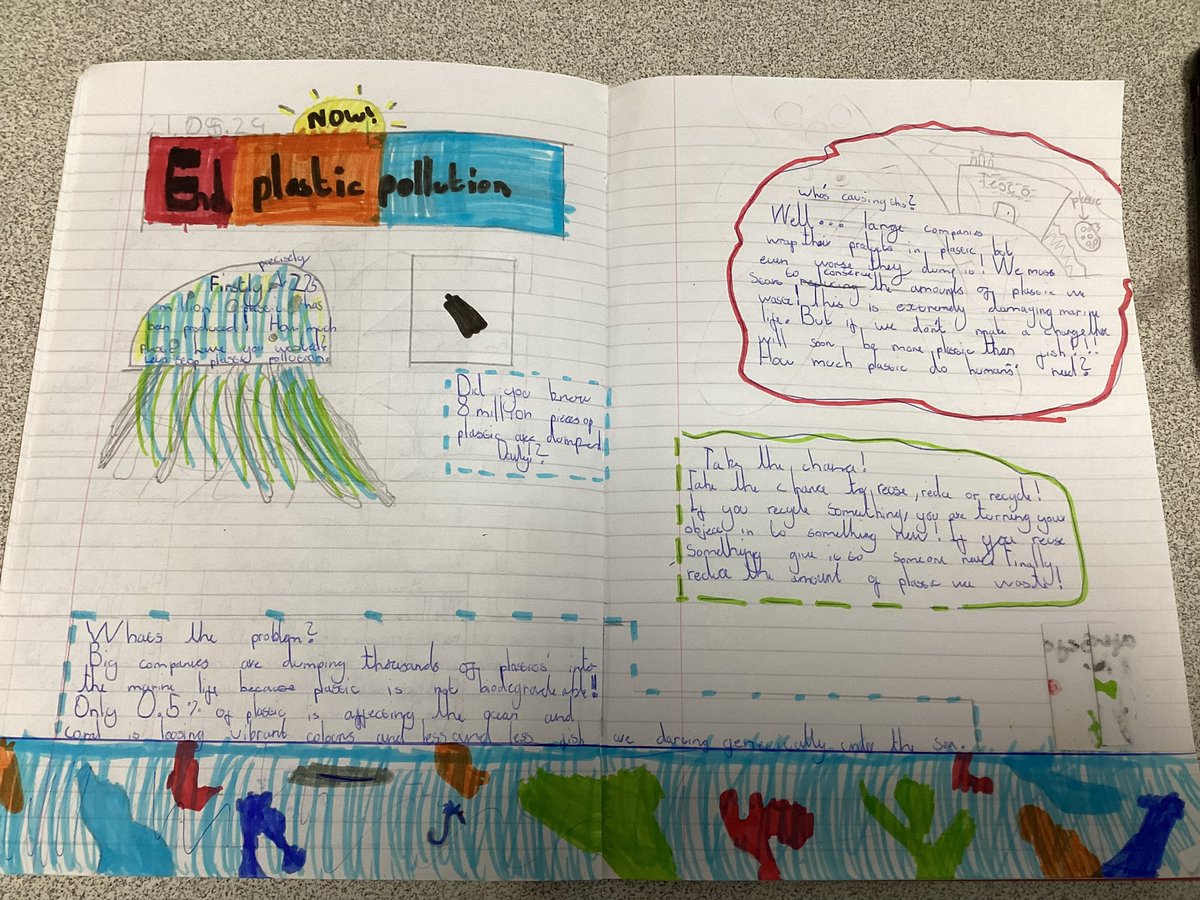 21.06.24
NOW!
End plastic pollution
precisely
Firstly 225
million plastic has
been produced! How much
plastic have you wasted?
Lets stop plastic pollution.
Did you know
8 million pieces of
plastic are dumped
Daily!?
Whats the problem?
Big companies are dumping thousands of plastics into
the marine life because plastic is not biodegradeable!!
Only 0.5% of plastic is affecting the ocean and
coral is loosing vibrant colours and less and less fish are darting genericcally under the sea.
who's causing this?
Well... large companies
wrap their products in plastic but
even worse they dump it! We muss
conserve
Scars to the amounts of plassic we
waste! this is extremely damaging marine
life. But if we don't make a change there
will soon be more plastic than fish!!!
How much plastic do humans need?
plastic
Take the chance!
Take the chance to reuse, reduce or recycle!
If you recycle something, you are turning your
object in to something new! If you reuse
something give it to someone new! Finally,
reduce the amount of plastic we waste!